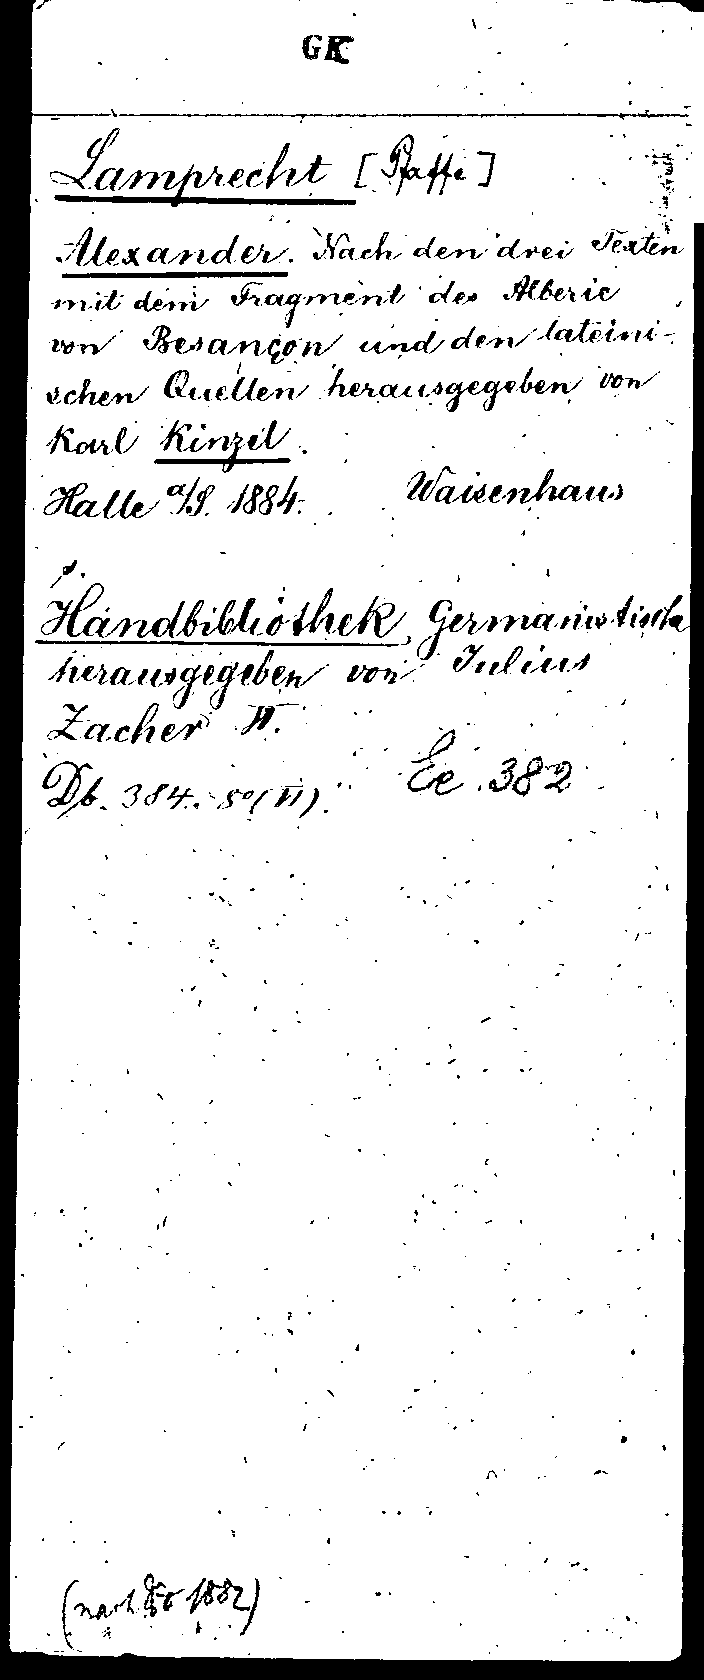 GK
Lamprecht [Pfaffe]
Alexander. Nach den drei Texten
mit dem Fragment des Alberic
von Besançon und den lateini-
schen Quellen herausgegeben von
Karl Kinzel.
Halle a/S. 1884. Waisenhaus
Handbibliothek, Germanistische
herausgegeben von Julius
Zacher VI.
Db. 384. 8º (VI). Ee. 382
(nach 1882)